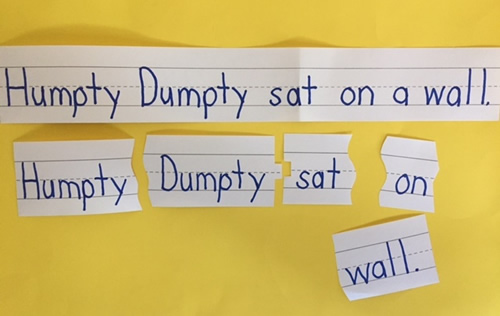 Humpty Dumpty sat on a wall.
Humpty Dumpty sat on
wall.